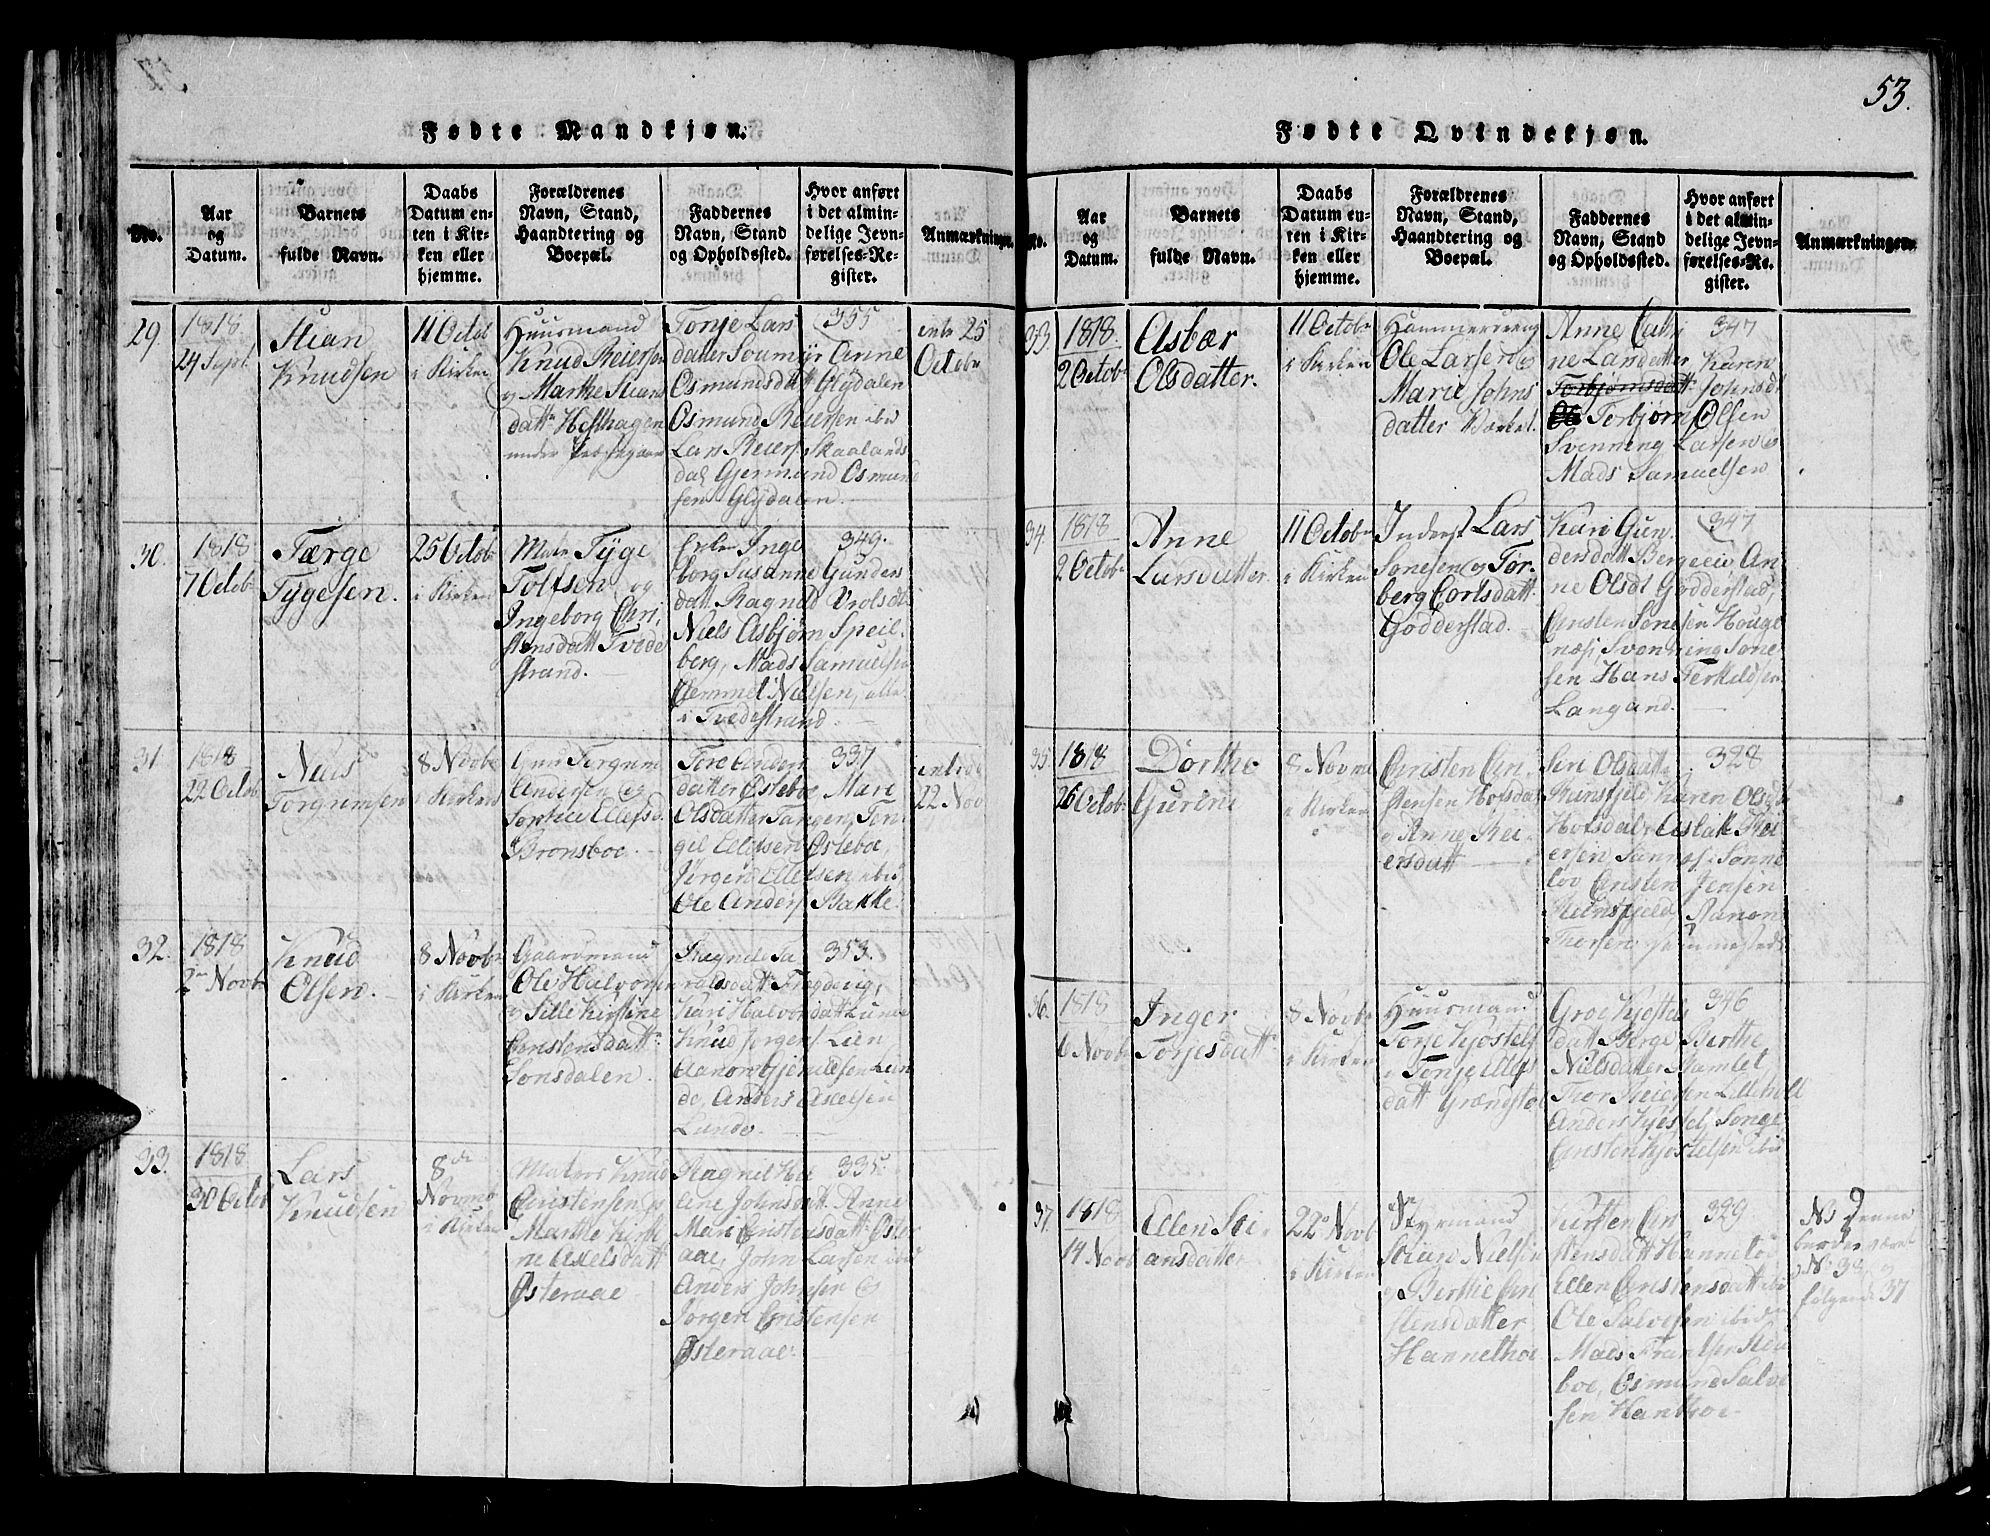 53.
Fødte Mandkjøn.
No.
Aar
og
Datum.
Barnets
fulde Navn.
Daabs
Datum en-
ten i Kir-
ken eller
hjemme.
Forældrenes
Navn, Stand,
Haandtering og
Boepæl.
Faddernes
Navn, Stand
og Opholdssted.
Hvor anført
i det almin-
delige Jevn-
førelses-Re-
gister.
Anmærkninger.
29.
1818
24 Sept
Stian
Knudsen
11 Octob
i Kirken
Huusmand
Knud Reiersen
og Marthe Stians
datter Hesthagen
under
Tonje Lars
datter Anne
Osmundsdatt Glydalen
Osmund Reiersen ibid
Lars Reiers Skaalands
dal Gjermund Osmund
sen Glydalen
355
25
Octobr
30.
1818
7 Octob
Færge
Tygesen.
25 Octob
i Kirken
Tyge
Tolfsen og
Ingeborg Chri
stensdatt Tvede
strand.
Inge
borg Susanne Gunders
datt. Ragnild Vrolsdt
Niels Asbjørn Speil-
berg, Mads Samuelsen
Gemmel Nielsen, alle
i Tvedestrand
349.
31.
1818
22 Octob
Niels
Torgrumsen
8 Novbr
i Kirken
Andersen og
Ellefsd.
Bronsboe.
Tore Anders
datter Østeboe Mari
Olsdatter Tangen, Ten-
gil Ellefsen Østeboe,
Jørgen Ellefsen ibid
Ole Anders Bakke
337
22 Nov
32.
1818
2 Novbr
Knud
Olsen.
8 Novbr
i Kirken
Gaardmand
Ole Halvorsen
og Sille Kirstine
Christensdatt
Sonsdalen.
Ragnild Ta
raldsdatt
Kari Halvorsdatt Lunde
Knud Jørgens. Lien
Aanon Gjermundsen Lun
de, Anders Axelsen
Lunde.
353.
33.
1818
30 Octob
Lars
Knudsen
8de
Novmb
i Kirken
Matros Knud
Christensen og
Marthe Kirsti
ne Axelsdatt
Østeraae
Ragnil Hel
ene Johnsdatt. Anne
Mari Christensdatt Øster
aae, John Larsen ibid
Anders Johnsen og
Jørgen Christensen
Østeraae.
335.
Fødte Qvindekjøn.
No.
Aar
og
Datum.
Barnets
fulde Navn.
Daabs
Datum en-
ten i Kir-
ken eller
hjemme.
Forældrenes
Navn, Stand,
Haandtering og
Boepæl.
Faddernes
Navn, Stand
og Opholdssted.
Hvor anført
i det almin-
delige Jevn-
førelses-Re-
gister.
Anmærkninger.
33.
1818.
2 Octobr
Asbær
Olsdatter.
11 Octobr
i Kirken
Hammerdreng
Ole Larsen og
Marie Johns
datter Værket.
Anne Cathri
ne Larsdatter Karen
Torbjørnsdatt. Johnsdt
Torbjørn Olsen
Svenning Larsen og
Mads Samuelsen
347
34.
1818
2 Octobr
Anne
Larsdatter.
11 Octobr
i Kirken
Inderst Lars
Sonesen og Tor-
berg Carlsdatt.
Godderstad.
Kari Gun-
dersdatt Bergeeie An-
ne Olsdt Godderstad,
Christen Sonesen Houge
næs, Svenning Sone
sen Hans Terkildsen
Langand.
347
35
1818
26 Octobr
Dorthe
Gurine
8 Novmr
i Kirken
Christen Chri
stensen Hofsdal
og Anne Rei-
ersdatt
Siri Olsdatt.
Ramsfjeld Karen Olsdtr
Hofsdal, Aslak Rei
ersen Sannes, Sonne
lov Christen Jensen
Aanon
Thorsen
328
36.
1818
6 Novbr
Inger
Torjesdatt.
8 Novbr
i Kirken
Huusmand
Torje Kjostels
og Tonje Ellefs
datt Grændstøl
Groe Kjostels
datt Berge, Berthe
Nielsdatter Hamlet,
Thor Reiersen Lilleholt
Anders Kjostels, Songe
Christen Kjostelsen ibid
346
37.
1818
14 Novbr
Ellen Sti-
ansdatter
22de Novb
i Kirken
Styrmand
Stian Nielsen
og Berthe Chri
stensdatter
Hannethoe
Kirsten Chri
stensdatt Hannetoe
Ellen Christensdatt ibid
Ole Salvesen ibid
Mads Frantsen Steen
boe, Osmund Salve
sen Hanthoe
329
NB denne
burde været
No 38 og
følgende 37